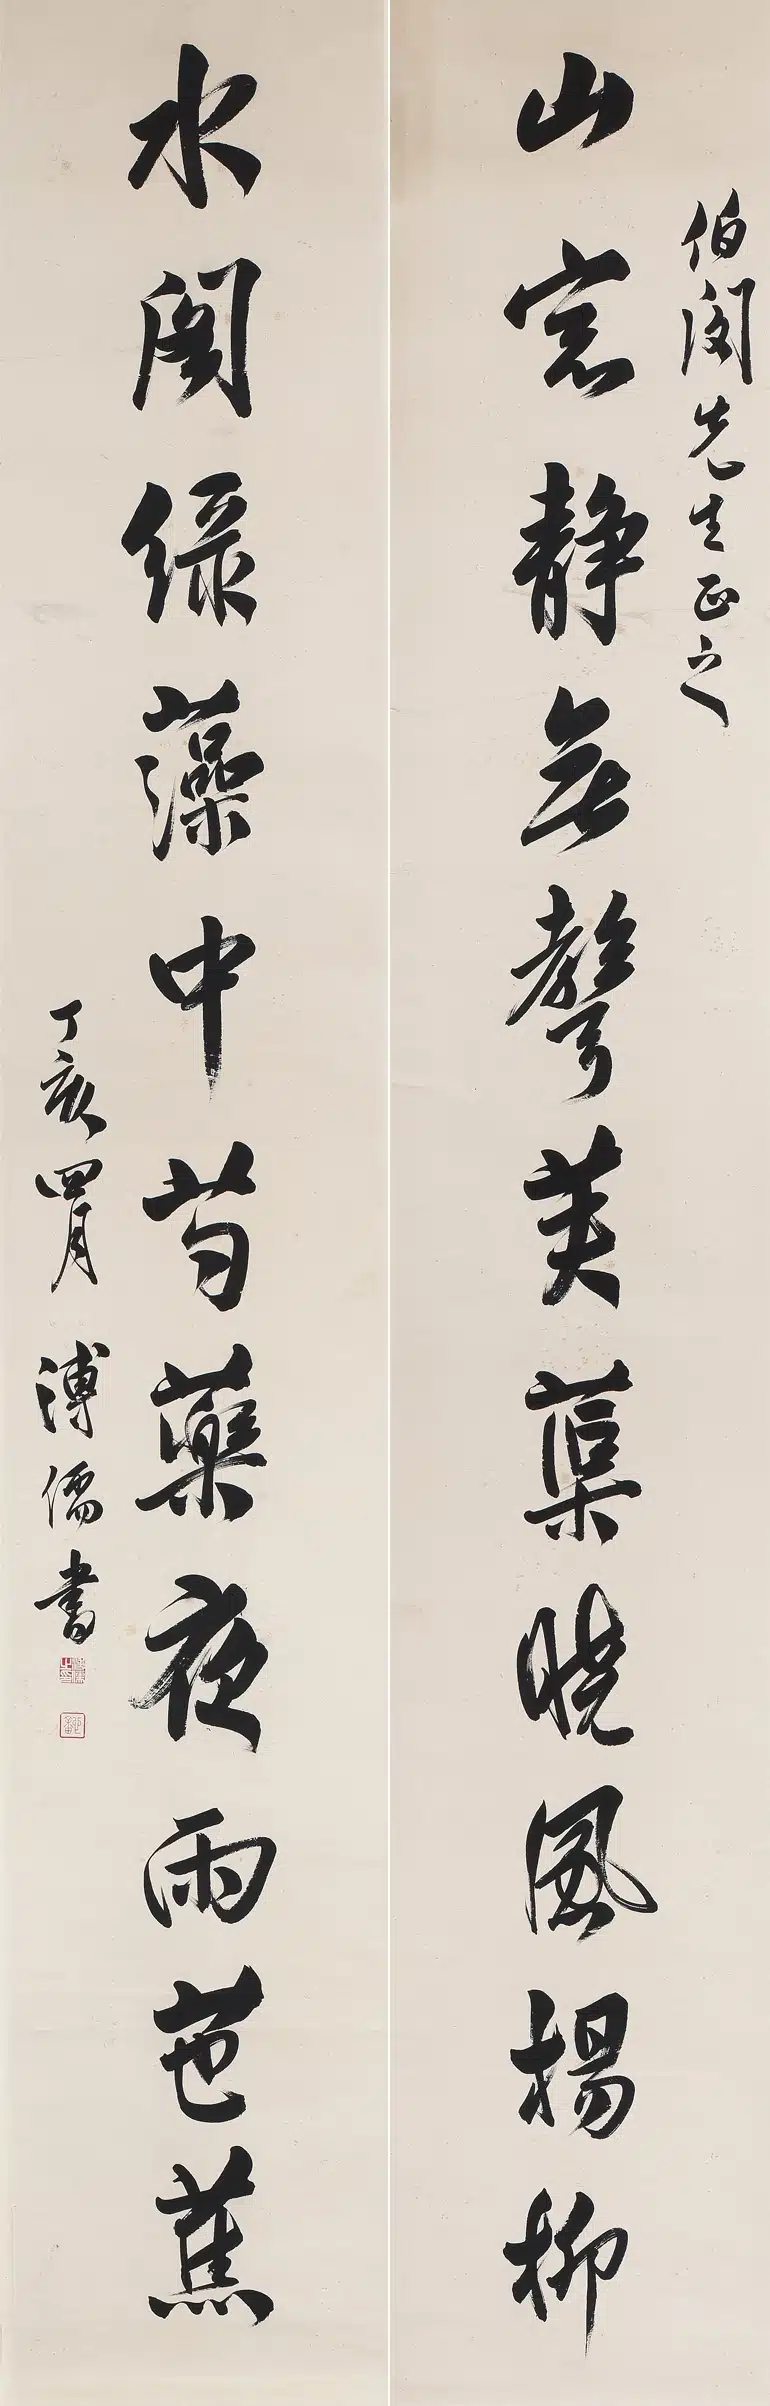 伯閔先生正之
山窓靜無聲芙蕖曉風楊柳
水閣綠藻中芍藥夜雨芭蕉
丁亥四月 溥儒書